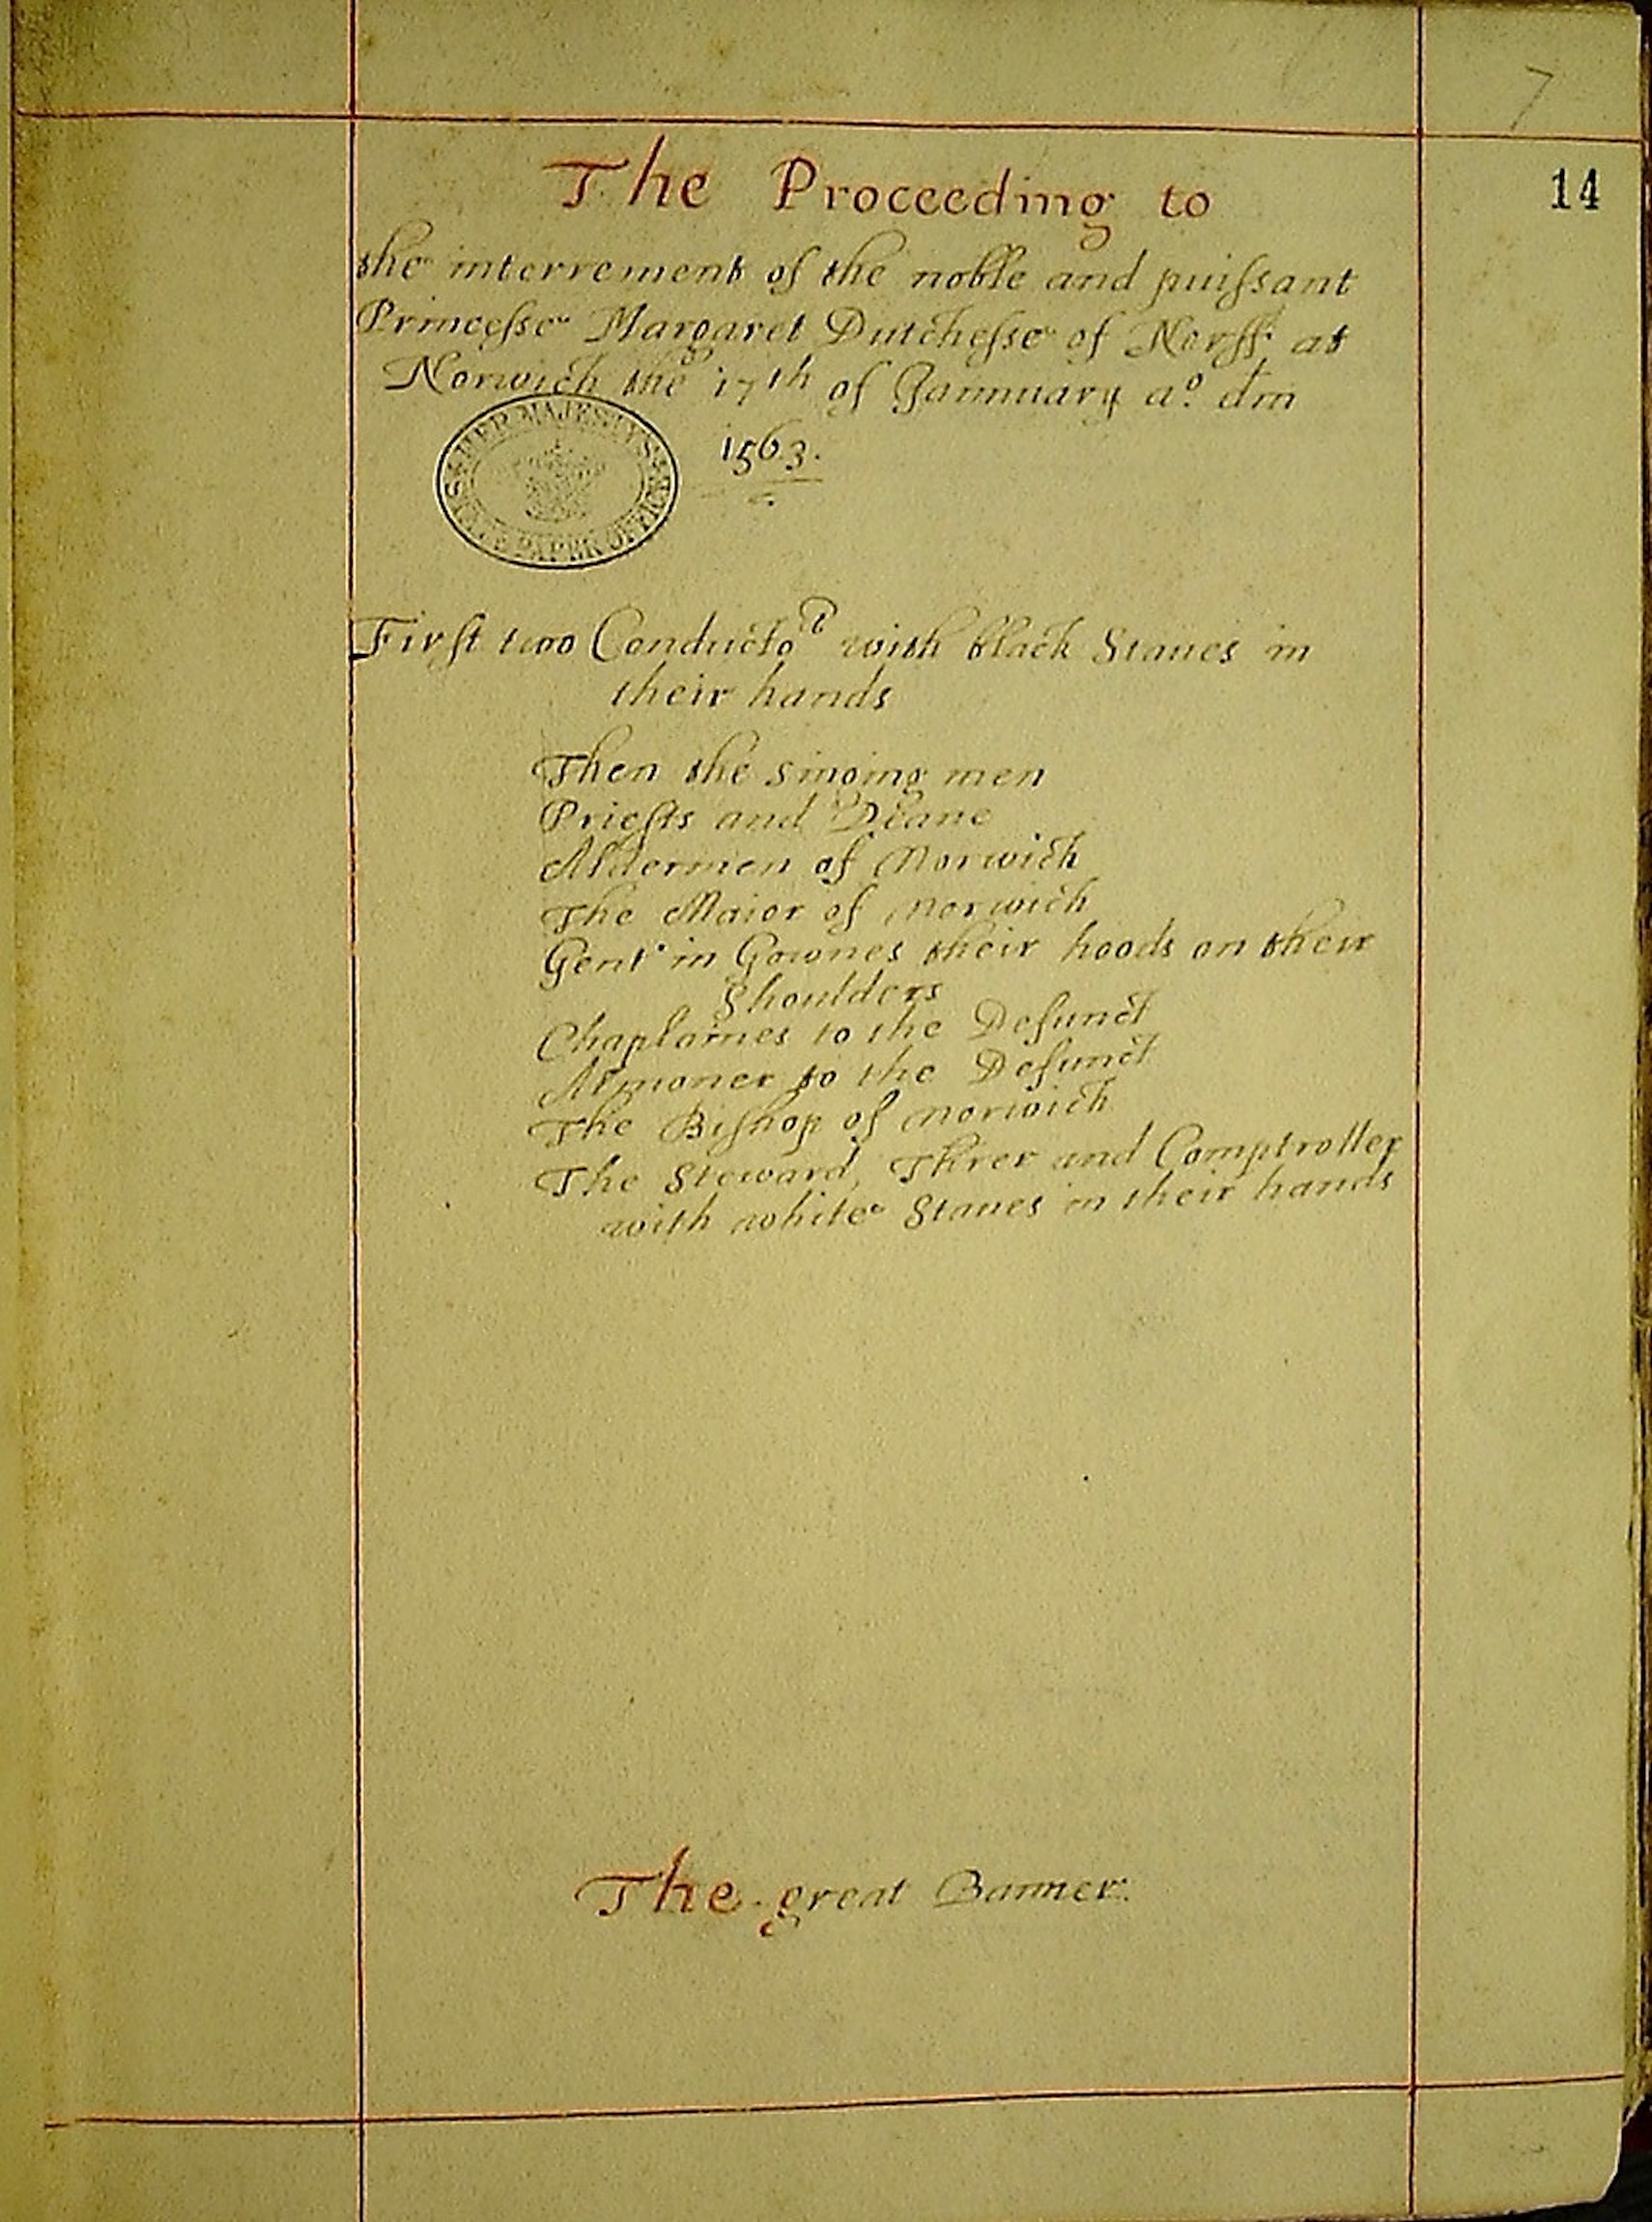 7
14
The Proceeding to
the interrement of the noble and puiſsant
Princeſse Margaret Dutcheſse of Norff: at
Norwich the 17th of Jannuary a.º dm̄
1563.
HER MAJESTY'S STATE PAPER OFFICE
Firſt two Conducto.rs with black Staues in
their hands
Then the singing men
Prieſts and Deane
Aldermen of Norwich
The Maior of Norwich
Gent' in Gownes their hoods on their
Shoulders
Chaplaines to the Defunct
Almoner to the Defunct
The Biſhop of Norwich
The Steward, Threr and Comptroller
with white Staues in their hands
The great Banner.